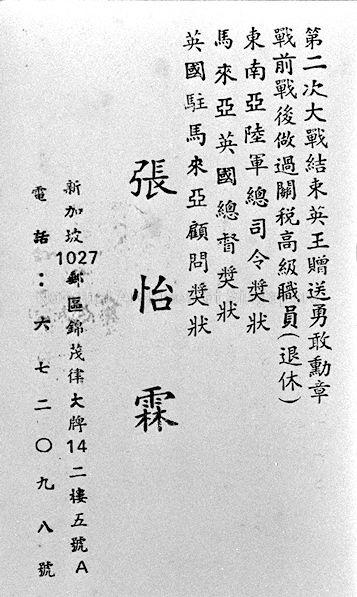 第二次大戰結束英王贈送勇敢勳章
戰前戰後做過關税高級職員(退休)
東南亞陸軍總司令獎狀
馬來亞英國總督獎狀
英國駐馬來亞顧問獎狀
張怡霖
新加坡1027郵區錦茂律大牌14二樓五號A
電話:六七二〇九八號